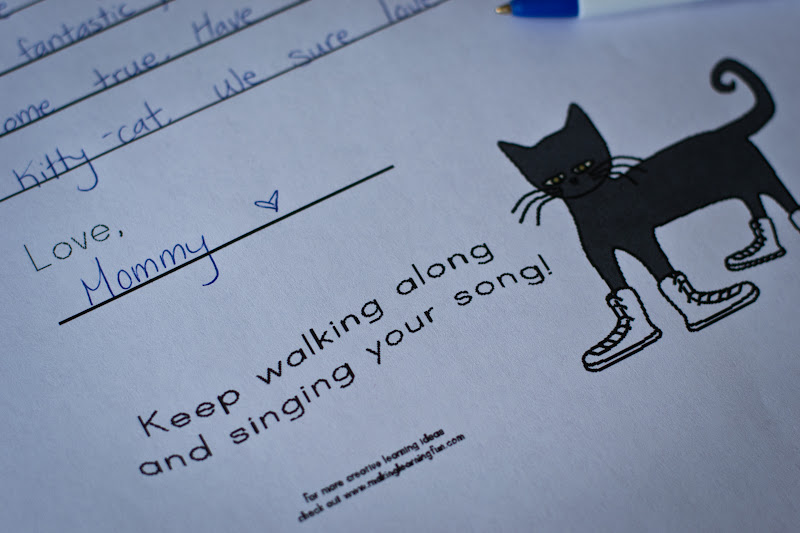 fantastic
ome true. Have
Kitty-cat. We sure love
Love,
Mommy
Keep walking along
and singing your song!
for more creative learning ideas
check out www.makinglearningfun.com